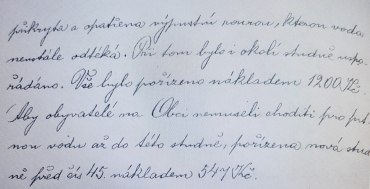 přikryta a opatřena výpustní rourou, kterou voda
neustále odtéká. Při tom bylo i okolí studně uspo-
řádáno. Vše bylo pořízeno nákladem 1200 Kč.
Aby obyvatelé na Obci nemuseli choditi pro pit-
nou vodu až do této studně, pořízena nová stud-
ně před čís 45. nákladem 547 Kč.